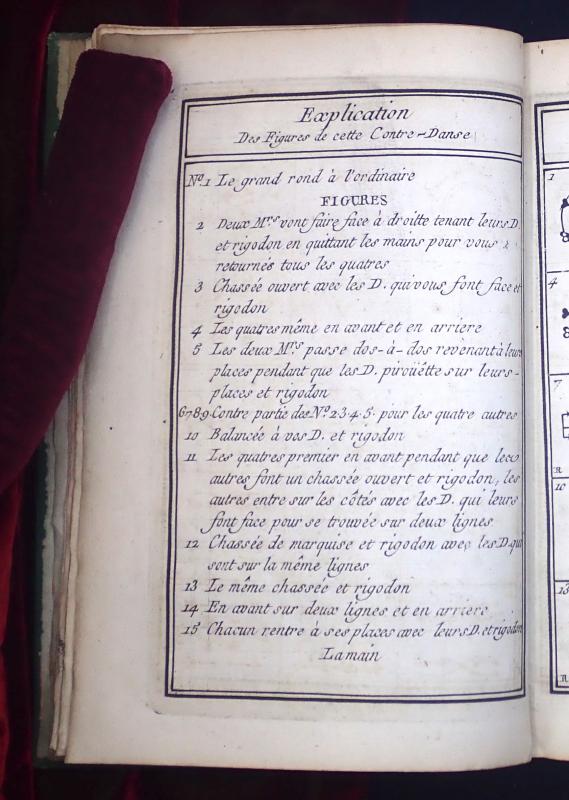 Explication
Des Figures de cette Contre-Danse
Nº.1 Le grand rond à l'ordinaire
FIGURES
2 Deux Mrs vont faire face à droitte tenant leurs D.
et rigodon en quittant les mains pour vous
retournés tous les quatres
3 Chassée ouvert avec les D. qui vous font face et
rigodon
4 Les quatres même en avant et en arriere
5 Les deux Mrs passe dos-à-dos revenant à leurs
places pendant que les D. pirouëtte sur leurs-
places et rigodon
6789 Contre partie des Nº 2.3.4.5. pour les quatre autres
10 Balancée à vos D. et rigodon
11 Les quatres premier en avant pendant que les
autres font un chassée ouvert et rigodon, les
autres entre sur les côtés avec les D. qui leurs
font face pour se trouvée sur deux lignes
12 Chassée de marquise et rigodon avec les D. qui
sont sur la même lignes
13 Le même chassée et rigodon
14 En avant sur deux lignes et en arriere
15 Chacun rentre à ses places avec leurs D. et rigodon
La main
1
4
7
R
10
13
R